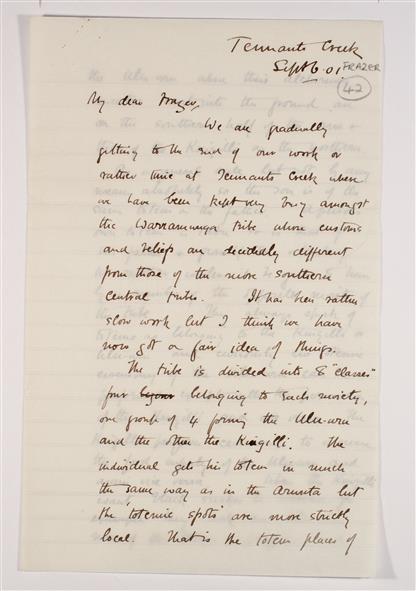 Tennants Creek
Sept 6. 01.
FRAZER
42
My dear Frazer,
We are gradually
getting to the end of our work or
rather time at Tennants Creek where
we have been kept very busy amongst
the Warramunga tribe whose customs
and beliefs are decidedly different
from those of the more southern
central tribes. It has been rather
slow work but I think we have
now got a fair idea of things.
The tribe is divided into 8 "classes"
four belonging to each moiety,
one group of 4 forming the Ulu-uru
and the other the Kingilli. The
individual gets his totem in much
the same way as in the Arunta but
the 'totemic spots' are more strictly
local. That is the totem places of